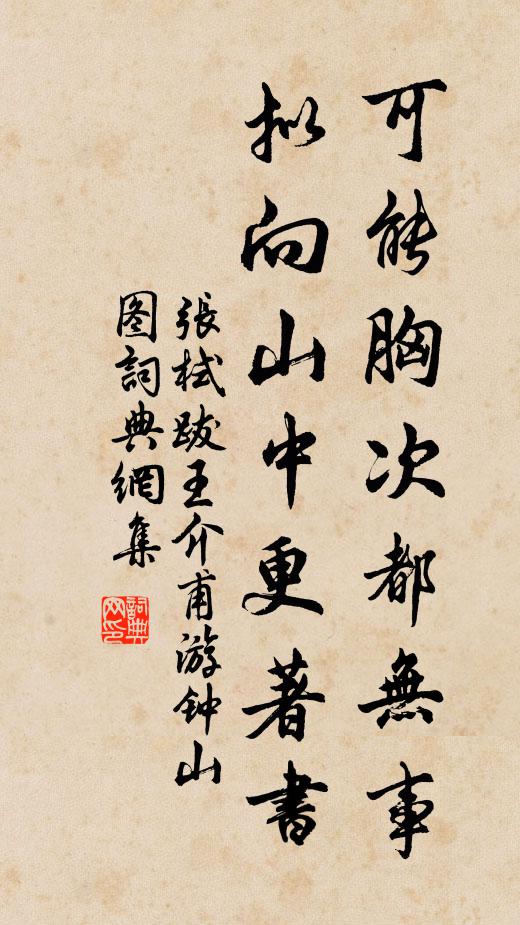 可能胸次都無事
拟向山中更著書
張栻跋王介甫游钟山
图詞典網集
詞典网印